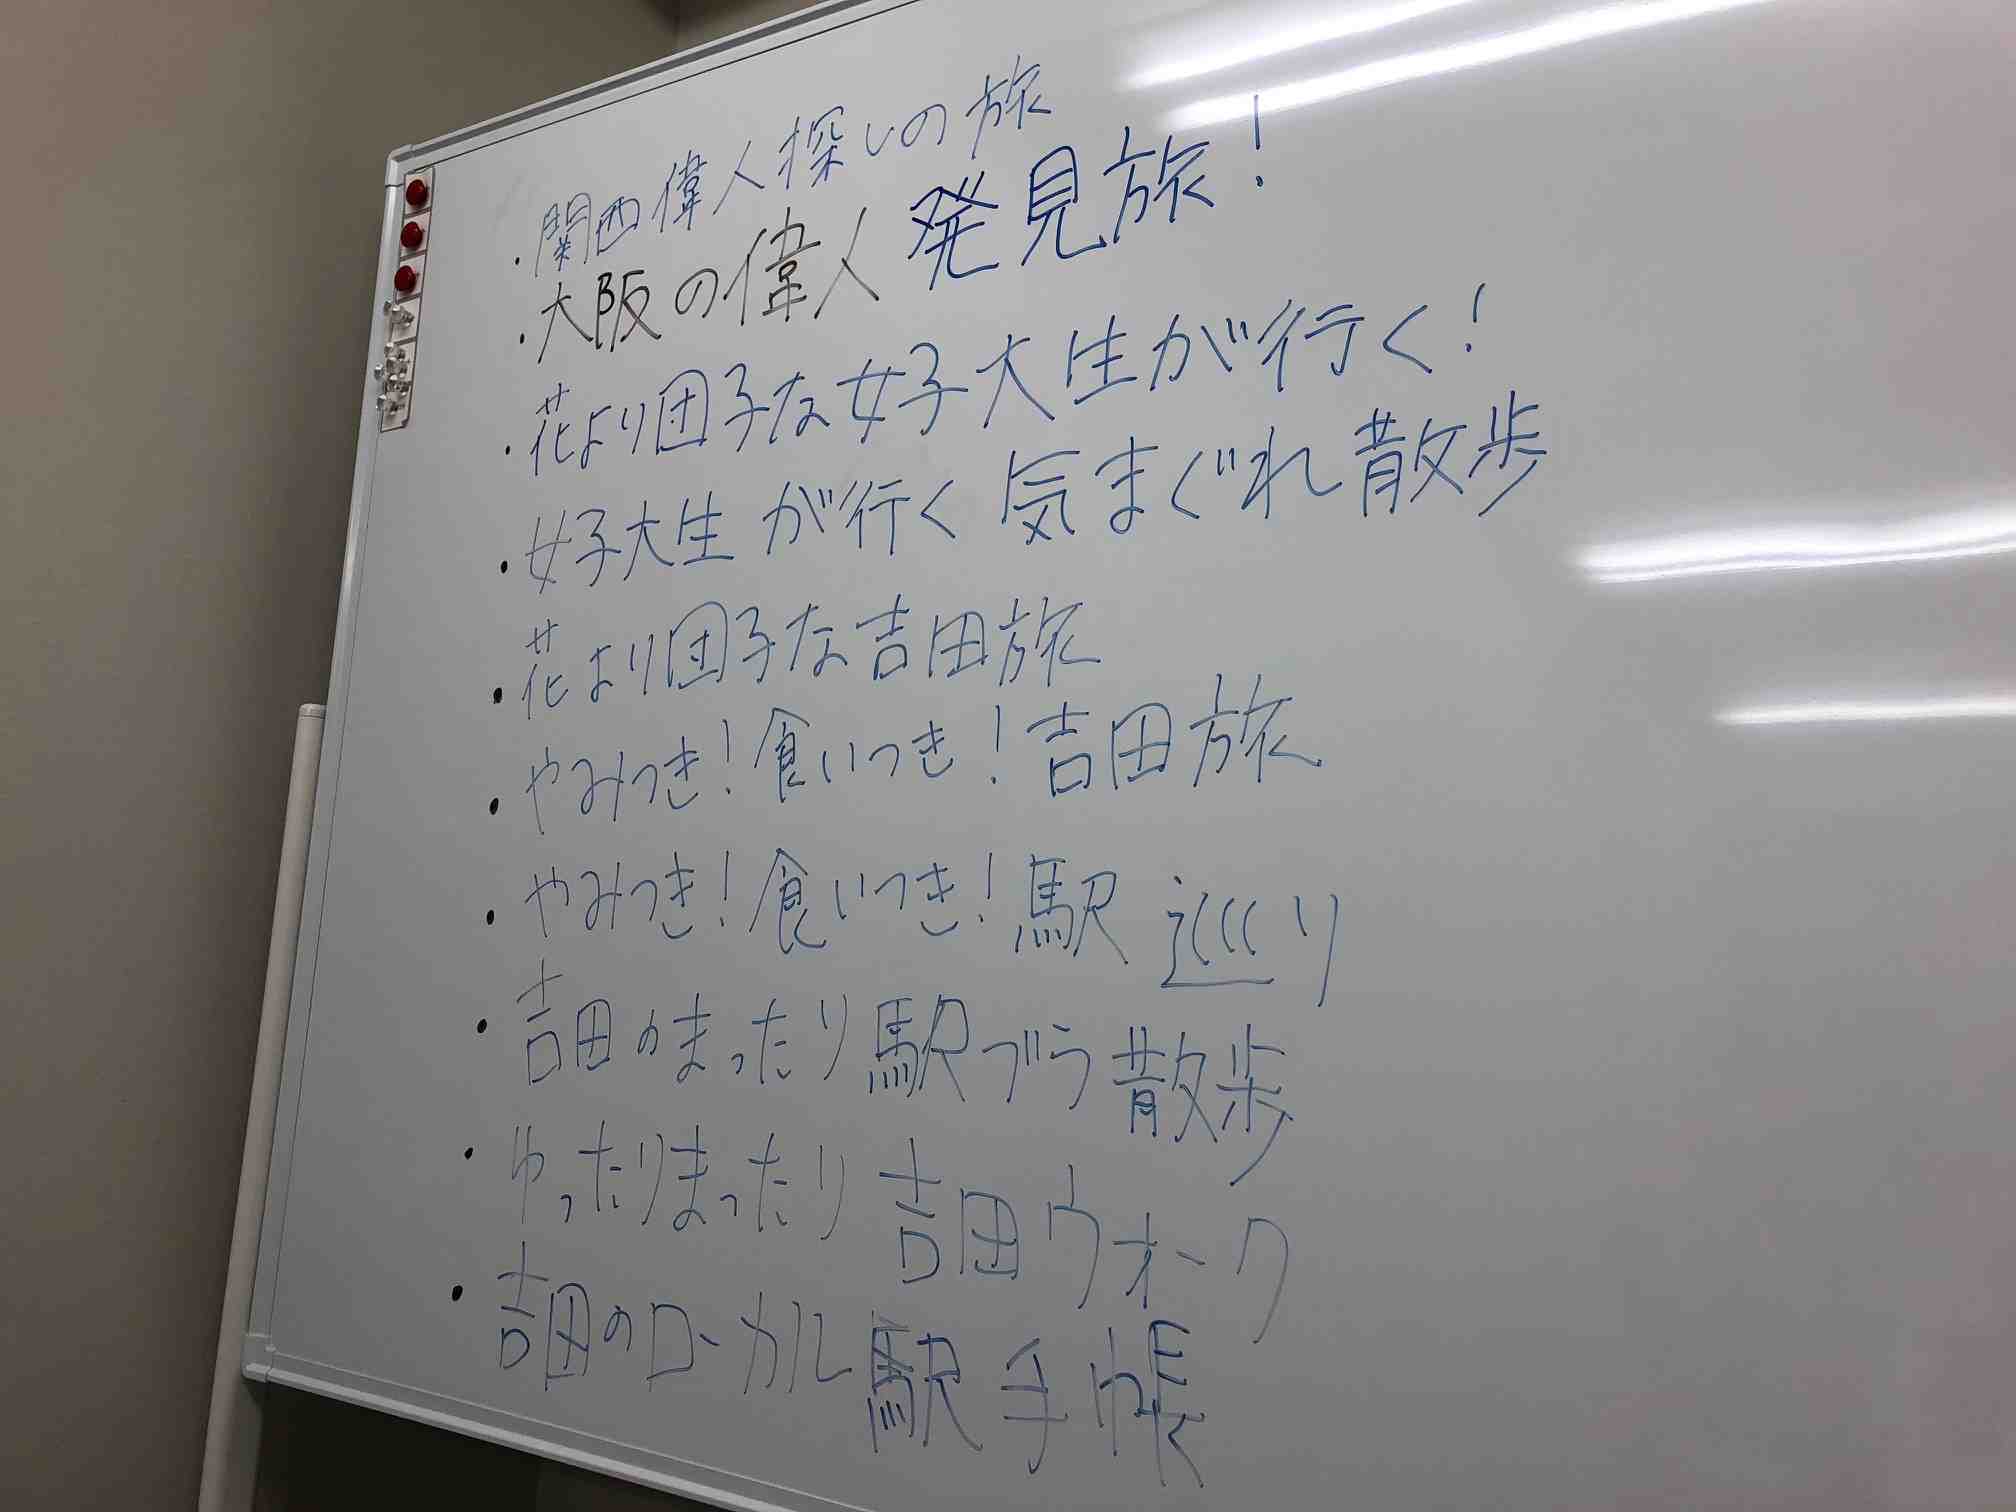 ・関西偉人探しの旅
・大阪の偉人発見旅!
・花より団子な女子大生が行く!
・女子大生が行く気まぐれ散歩
・花より団子な吉田旅
・やみつき!食いつき!吉田旅
・やみつき!食いつき!駅巡り
・吉田のまったり駅ブラ散歩
・ゆったりまったり吉田ウォーク
・吉田のローカル駅手帳